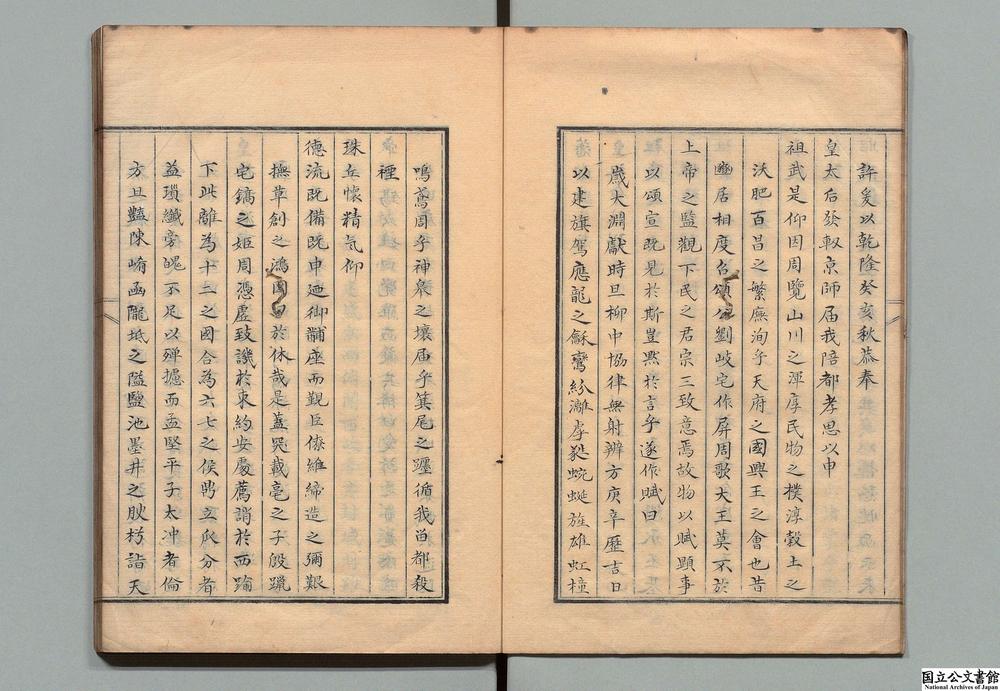 許爰以乾隆癸亥秋恭奉
皇太后發軔京師届我陪都孝思以申
祖武是仰因周覽山川之渾厚民物之樸淳穀土之
沃肥百昌之繁廡洵乎天府之國興王之會也昔
豳居相度召頌公劉岐宅作屏周歌大王莫不於
上帝之監觀下民之君宗三致意焉故物以賦顯事
以頌宣既見於斯豈默於言乎遂作賦曰
歲大淵獻時旦柳中協律無射辨方庚辛歷吉日
以建旗駕應龍之龢鸞紛灕虖蜿蜒旌雄虹橦
鳴鳶周乎神皋之壤届乎箕尾之躔循我畄都
裡
珠丘懷精氣仰
德流既備既申廼御黼座而觀臣僚維締造之彌艱
撫草創之鴻圖曰於休哉是蓋載亳之子殷躐
宅鎬之姬周憑虛致譏於東約安處薦誚於西踰
下此離為十二之國合為六七之侯鼎立瓜分者
益瑣纖旁魄不足以殫攄而孟堅平子太冲者倫
方且豔陳崤函隴坻之隘鹽池墨井之腴詣天
国立公文書館
National Archives of Japan